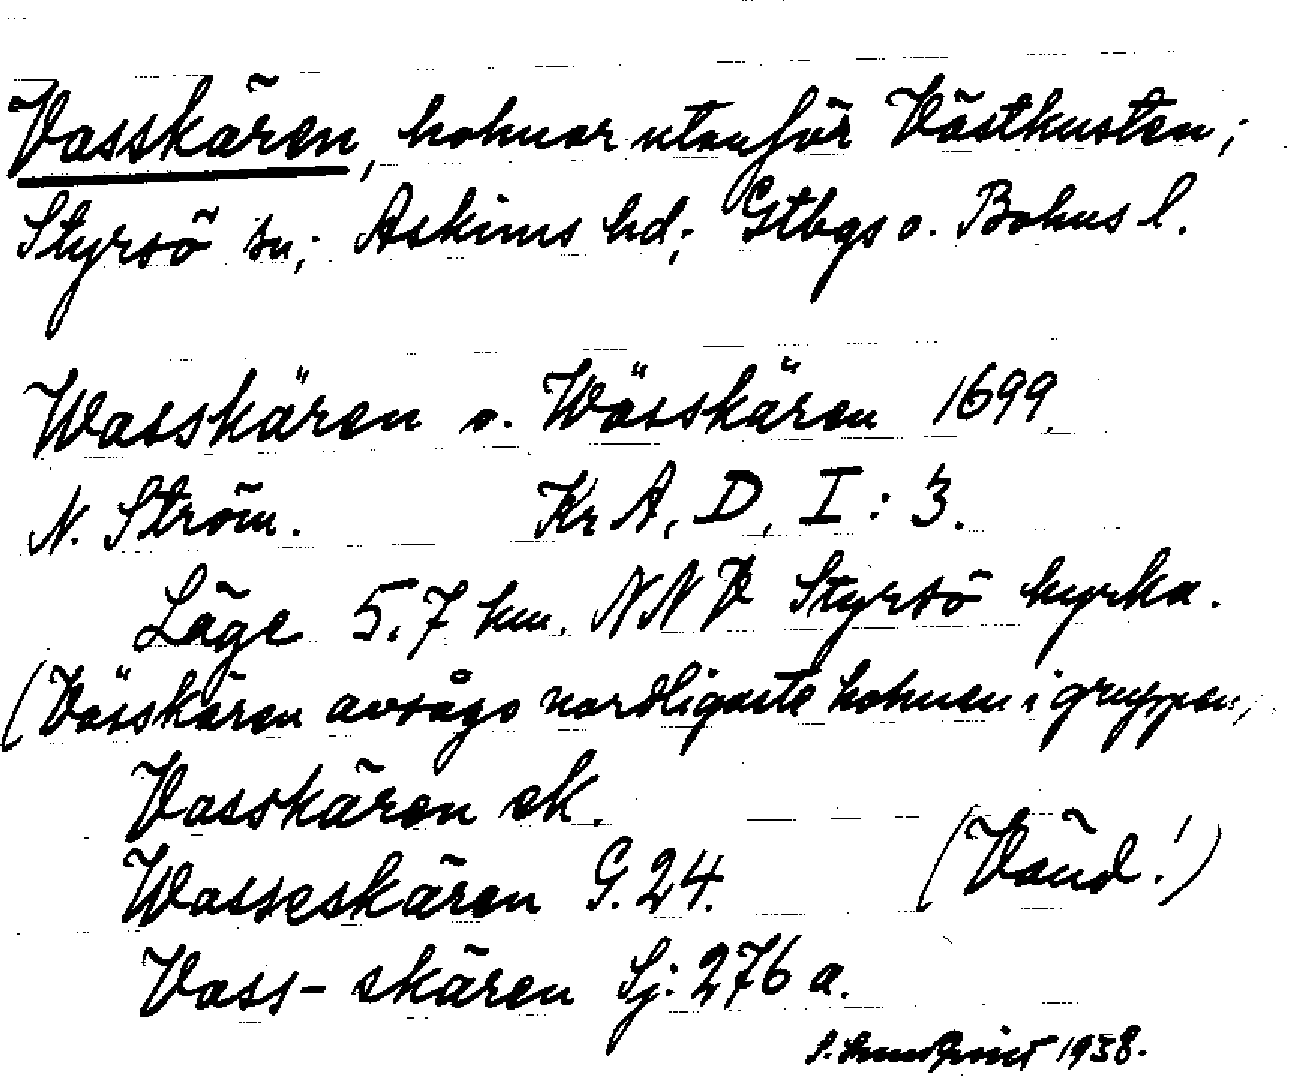 Vasskären, holmar utanför Västkusten;
Styrsö sn; Askims hd; Gtbgs o. Bohus l.
Wasskären o. Wässkären 1699.
N. Ström. Kr A, D, I: 3.
Läge 5.7 km. NNV Styrsö kyrka.
(Vässkären avsågo nordligaste holmen i gruppen,
Vasskären ek.
Wasseskären G. 24. (Vänd!)
Vass-skären Sj: 276 a.
1938.